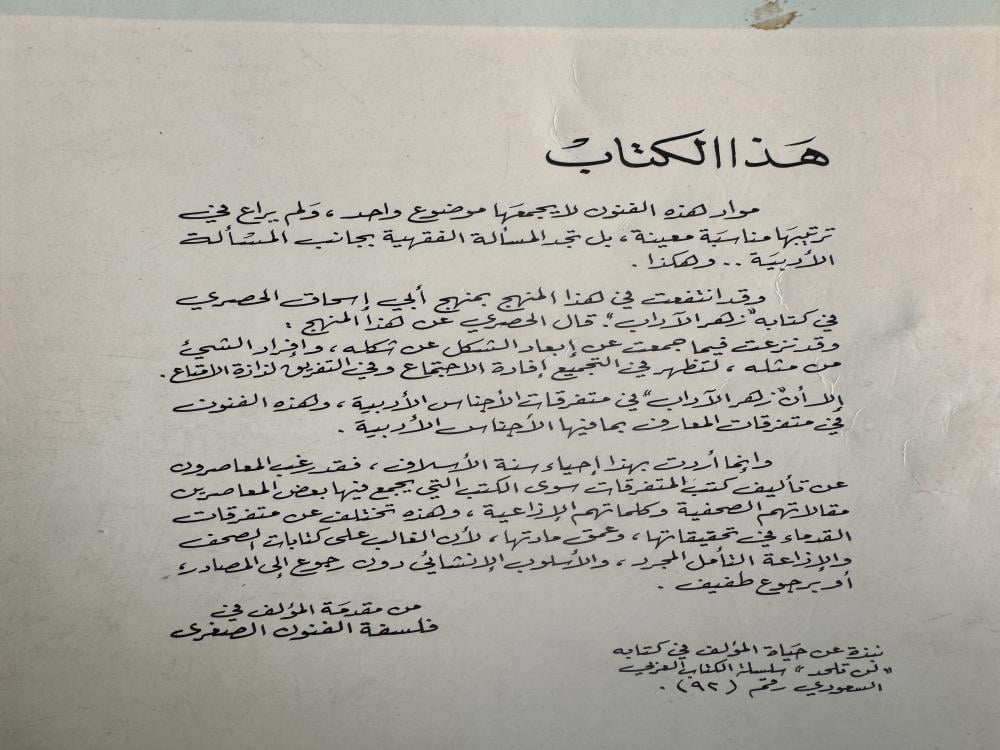 هَذا الكتابْ
مواد هذه الفنون لا يجمعها موضوع واحد ، ولم يراع في
ترتيبها مناسبة معينة ، بل تجد المسألة الفقهية بجانب المسألة
الأدبية .. وهكذا .
وقد انتفعت في هذا المنهج بمنهج أبي إسحاق الحصري
في كتابه "زهر الآداب". قال الحصري عن هذا المنهج :
وقد نزعت فيما جمعت عن إبعاد الشكل عن شكله ، وإفراد الشيئ
من مثله ، لتظهر في التجميع إفادة الاجتماع وفي التفريق لذاذة الاقناع .
إلا أن "زهر الآداب" في متفرقات الأجناس الأدبية ، وهذه الفنون
في متفرقات المعارف بما فيها الأجناس الأدبية .
وإنما أردت بهذا إحياء سنة الأسلاف ، فقد رغب المعاصرون
عن تأليف كتب المتفرقات سوى الكتب التي يجمع فيها بعض المعاصرين
مقالاتهم الصحفية وكلماتهم الإذاعية ، وهذه تختلف عن متفرقات
القدماء في تحقيقاتها ، وعمق مادتها ، لأن الغالب على كتابات الصحف
والإذاعة التأمل المجرد ، والأسلوب الإنشائي دون رجوع إلى المصادر ،
أو برجوع طفيف .
من مقدمة المؤلف في
فلسفة الفنون الصغرى
نبذة عن حياة المؤلف في كتابه
"لن تلحد" سلسلة الكتاب العربي
السعودي رقم (٩٢) .